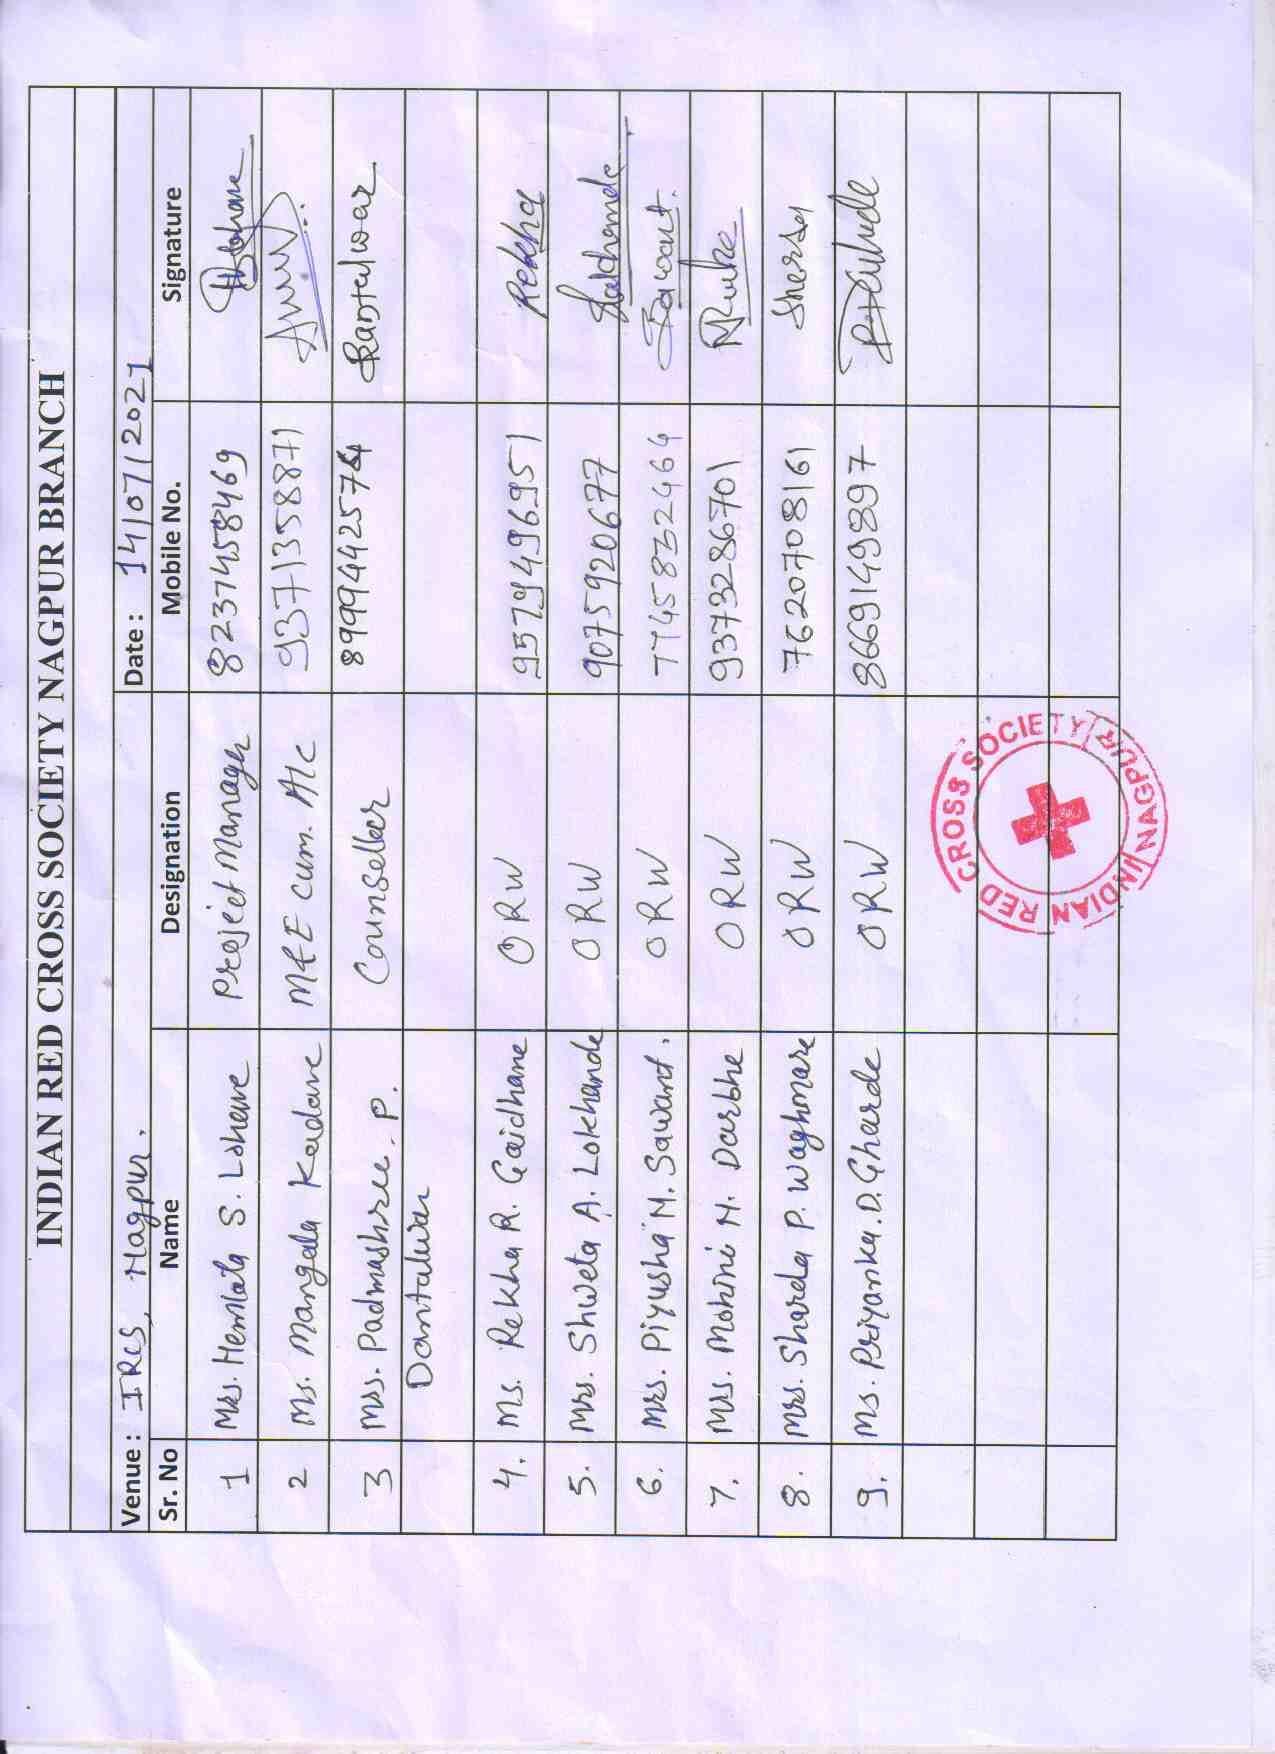 INDIAN RED CROSS SOCIETY NAGPUR BRANCH
Venue : IRCS, Nagpur. Date : 14/07/2021
Sr. No Name Designation Mobile No. Signature
1 Mrs. Hemlata S. Lohave Project Manager 8237458469
2 Ms. Mangala Kadave M&E cum. A/c 9371358871
3 Mrs. Padmashree. P. Counsellor 8999442574 Dantulwar
Dantulwar
4. Ms. Rekha R. Gaidhane ORW 9579496951 Rekha
5. Mrs. Shweta A. Lokhande ORW 9075920677 Lokhande
6. Mrs. Piyusha M. Sawant. ORW 7745832464 Sawant.
7. Mrs. Mohini N. Darbhe ORW 9373286701
8. Mrs. Sharda P. Waghmare ORW 7620708161
9. Ms. Priyanka. D. Gharde ORW 8669149897
INDIAN RED CROSS SOCIETY NAGPUR